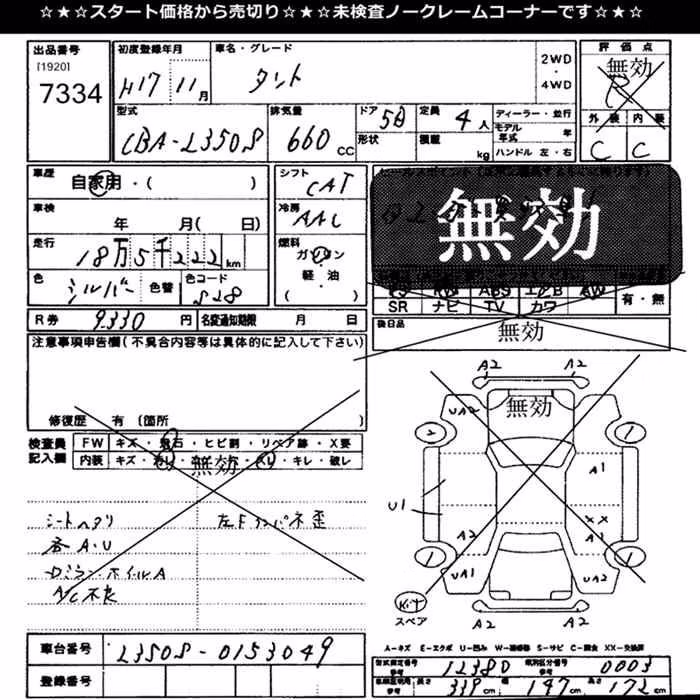 ☆★☆★スタート価格から売切り☆★☆★未検査ノークレームコーナーです☆★☆
出品番号
[1920]
7334
初度登録年月
H17 11月
車名・グレード
タント
2WD
・
4WD
評価点
無効
R
外装 内装
C C
型式
CBA-L350S
排気量
660 cc
ドア 5D
形状
定員 4人
積載 kg
ディーラー・並行
モデル年式 年
ハンドル 左・右
車歴
自家用・( )
シフト
CAT
車検
年 月( 日)
冷房
AAC
走行
18万5千222km
燃料
ガソリン
軽・油
( )
色
シルバー
色替
色コード
S28
無効
PS PW ABS エアB AW
SR ナビ TV カワ
有・無
R券 9.330円
名変通知期限 月 日
後日品
無効
注意事項申告欄(不具合内容等は具体的に記入して下さい)
修復歴 有(箇所 )
検査員記入欄
FW キズ・飛石・ヒビ割・リペア跡・X要
内装 キズ・ 無効 ・キレ・破レ
シートヘタリ
各A・U
A/C不良
A2 A2
UA2
無効
A1
U1
A2
XX
UA1
UA2
A2 A2
スペア
A-キズ E-エクボ U-凹み W-補修跡 S-サビ C-腐食 XX-交換済
車台番号
L350S-0153049
登録番号
型式指定番号 参考
12380
類別区分番号 参考
0003
車検証明用 参考
長さ 339cm
幅 147cm
高さ 172cm